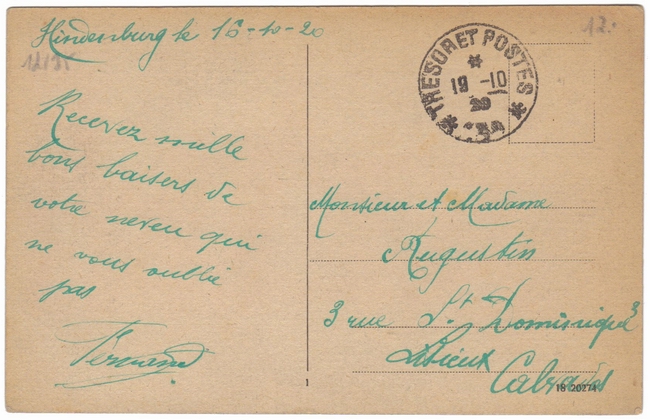 Hindenburg le 18-10-20
12.
Recevez mille
bons baisers de
votre neveu qui
ne vous oublie
pas
Fernand
TRESOR ET POSTES
19 -10
20
Monsieur et Madame
Augustin
3 rue St Dominique
Lisieux
Calvados
18 20274